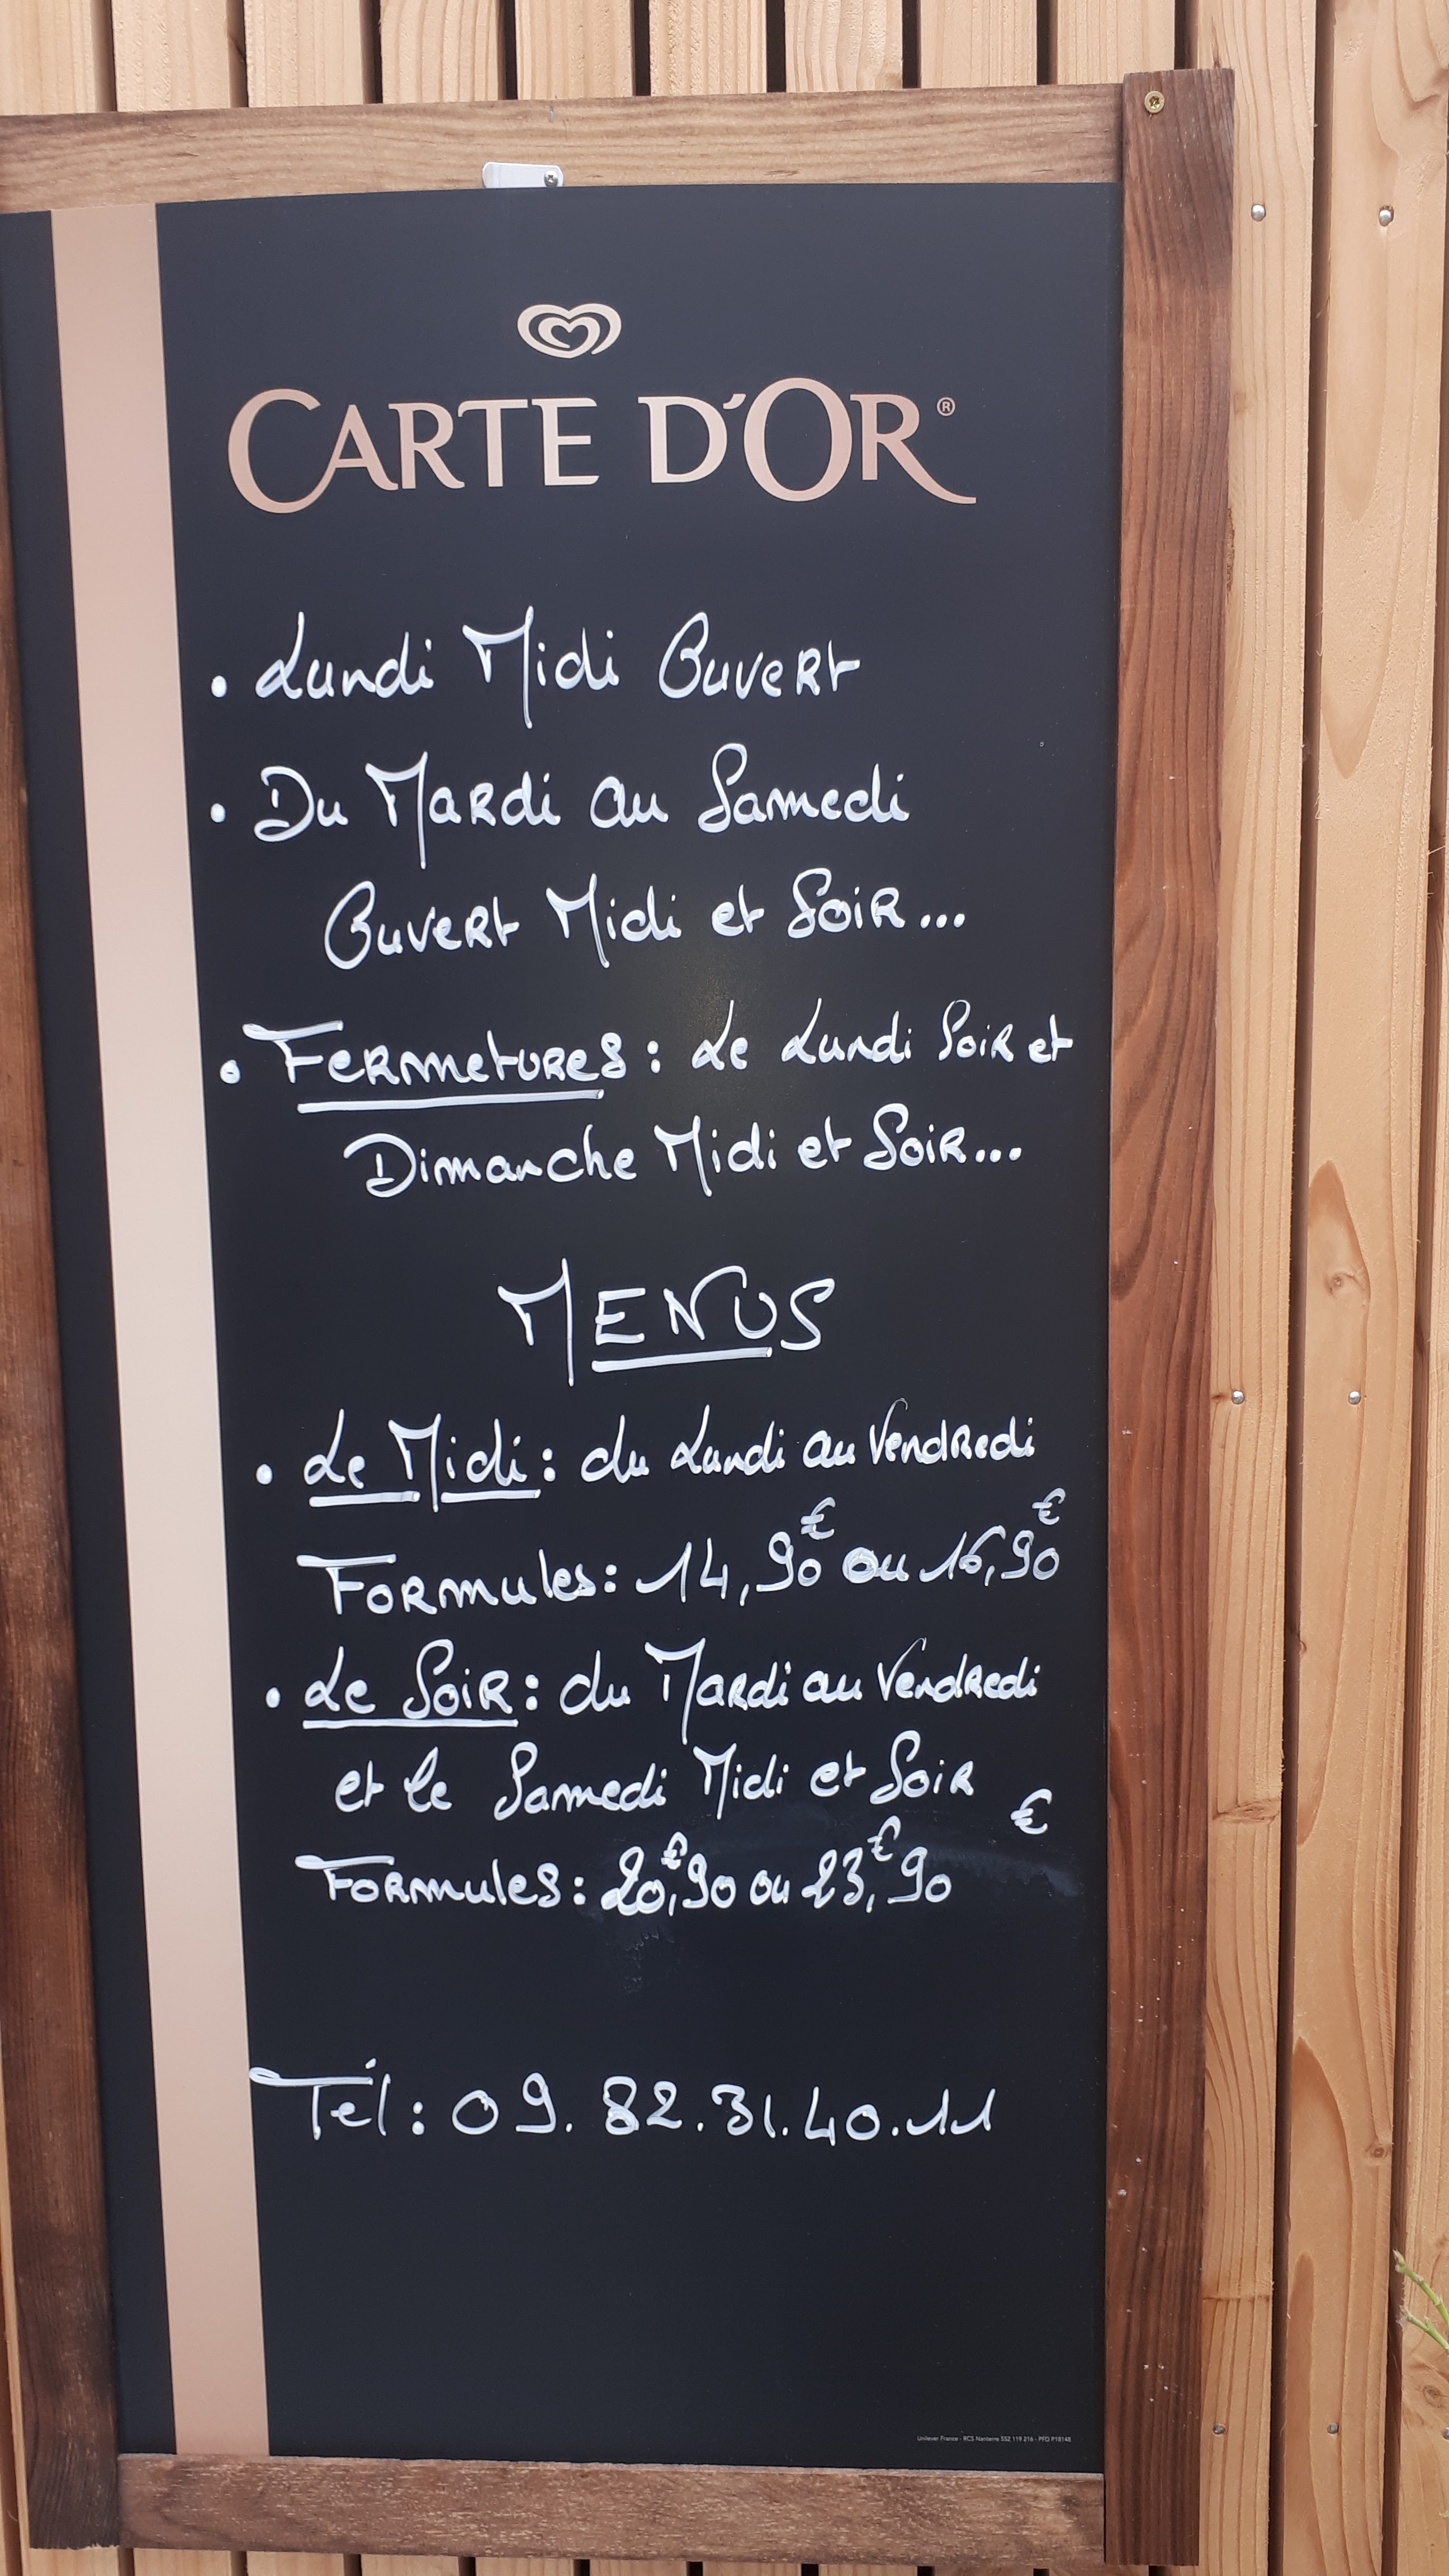 CARTE D'OR®
• Lundi Midi Ouvert
• Du Mardi au Samedi
Ouvert Midi et Soir...
• Fermetures : Le Lundi Soir et
Dimanche Midi et Soir...
MENUS
• Le Midi : du Lundi au Vendredi
Formules : 14,90€ ou 16,90€
• Le Soir : du Mardi au Vendredi
et le Samedi Midi et Soir
€
Formules : 20,€90 ou 23,€90
Tél : 09.82.31.40.11
Unilever France - RCS Nanterre 552 119 216 - PFD P18148